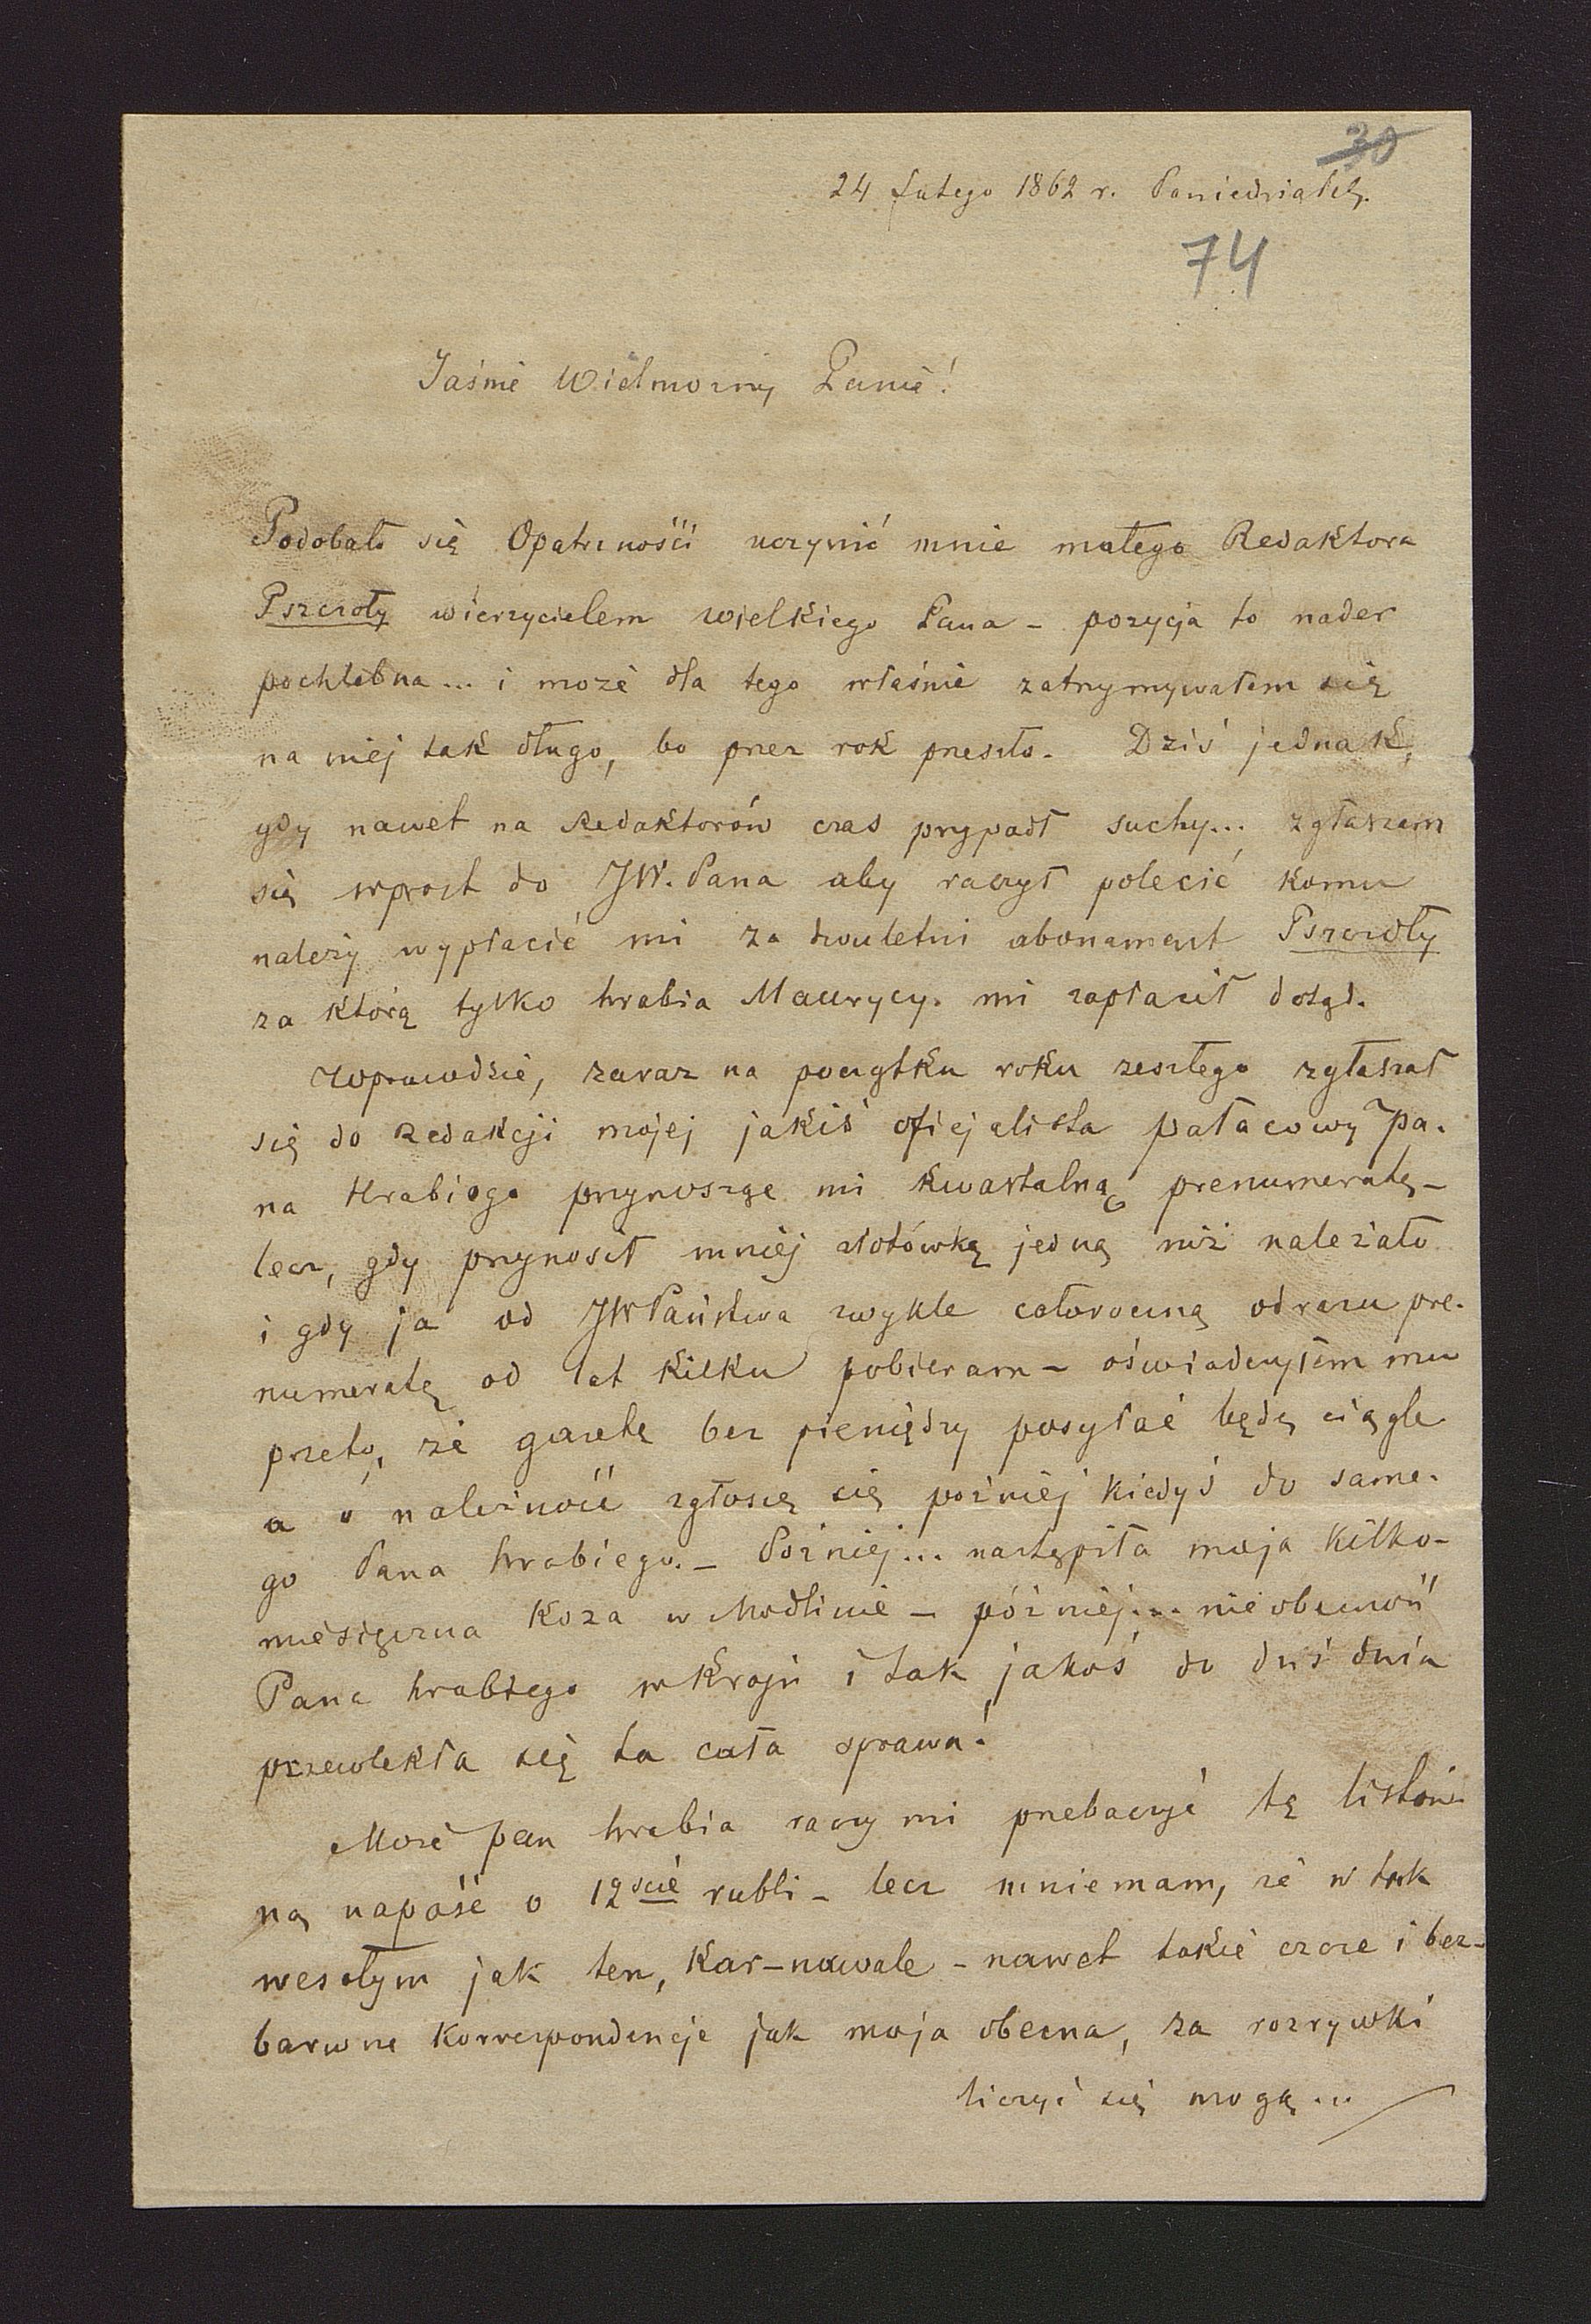 30
24 Lutego 1862 r. Poniedziałek.
74
Jaśnie Wielmożny Panie!
Podobało się Opatrzności uczynić mnie małego Redaktora
Pszczoły wierzycielem wielkiego Pana – pozycja to nader
pochlebna... i może dla tego właśnie zatrzymywałem się
na niéj tak długo, bo przez rok przeszło. Dziś jednak,
gdy nawet na Redaktorów czas przypadł suchy... zgłaszam
się wprost do JW. Pana aby raczył polecić komu
należy wypłacić mi za dwuletni abonament Pszczoły
za którą tylko hrabia Maurycy. mi zapłacił dotąd.
Wprawdzie, zaraz na początku roku zeszłego zgłaszał
się do Redakcji mojéj jakiś oficjalista pałacowy Pa-
na Hrabiego przynosząc mi kwartalną prenumeratę –
lecz, gdy przynosił mniéj złotówką jedną niż należało
i gdy ja od JWPaństwa zwykle całoroczną odrazu pre-
numeratę od lat kilku pobieram – oświadczyłem mu
przeto, że gazetę bez pieniędzy posyłać będę ciągle
a o należność zgłoszę się poźniéj kiedyś do same-
go Pana hrabiego. – Poźniéj... nastąpiła moja kilko-
miesięczna koza w Modlinie – póżniéj... nieobecność
Pana hrabiego w kraju i tak jakoś do dziś dnia
przewlekła się ta cała sprawa.
Może pan hrabia raczy mi przebaczyć tę listow-
ną napaść o 12ście rubli – lecz mniemam, że w tak
wesołym jak ten, kar-nawale – nawet takie czcze i bez-
barwne korrespondencje jak moja obecna, za rozrywki
liczyć się mogą...